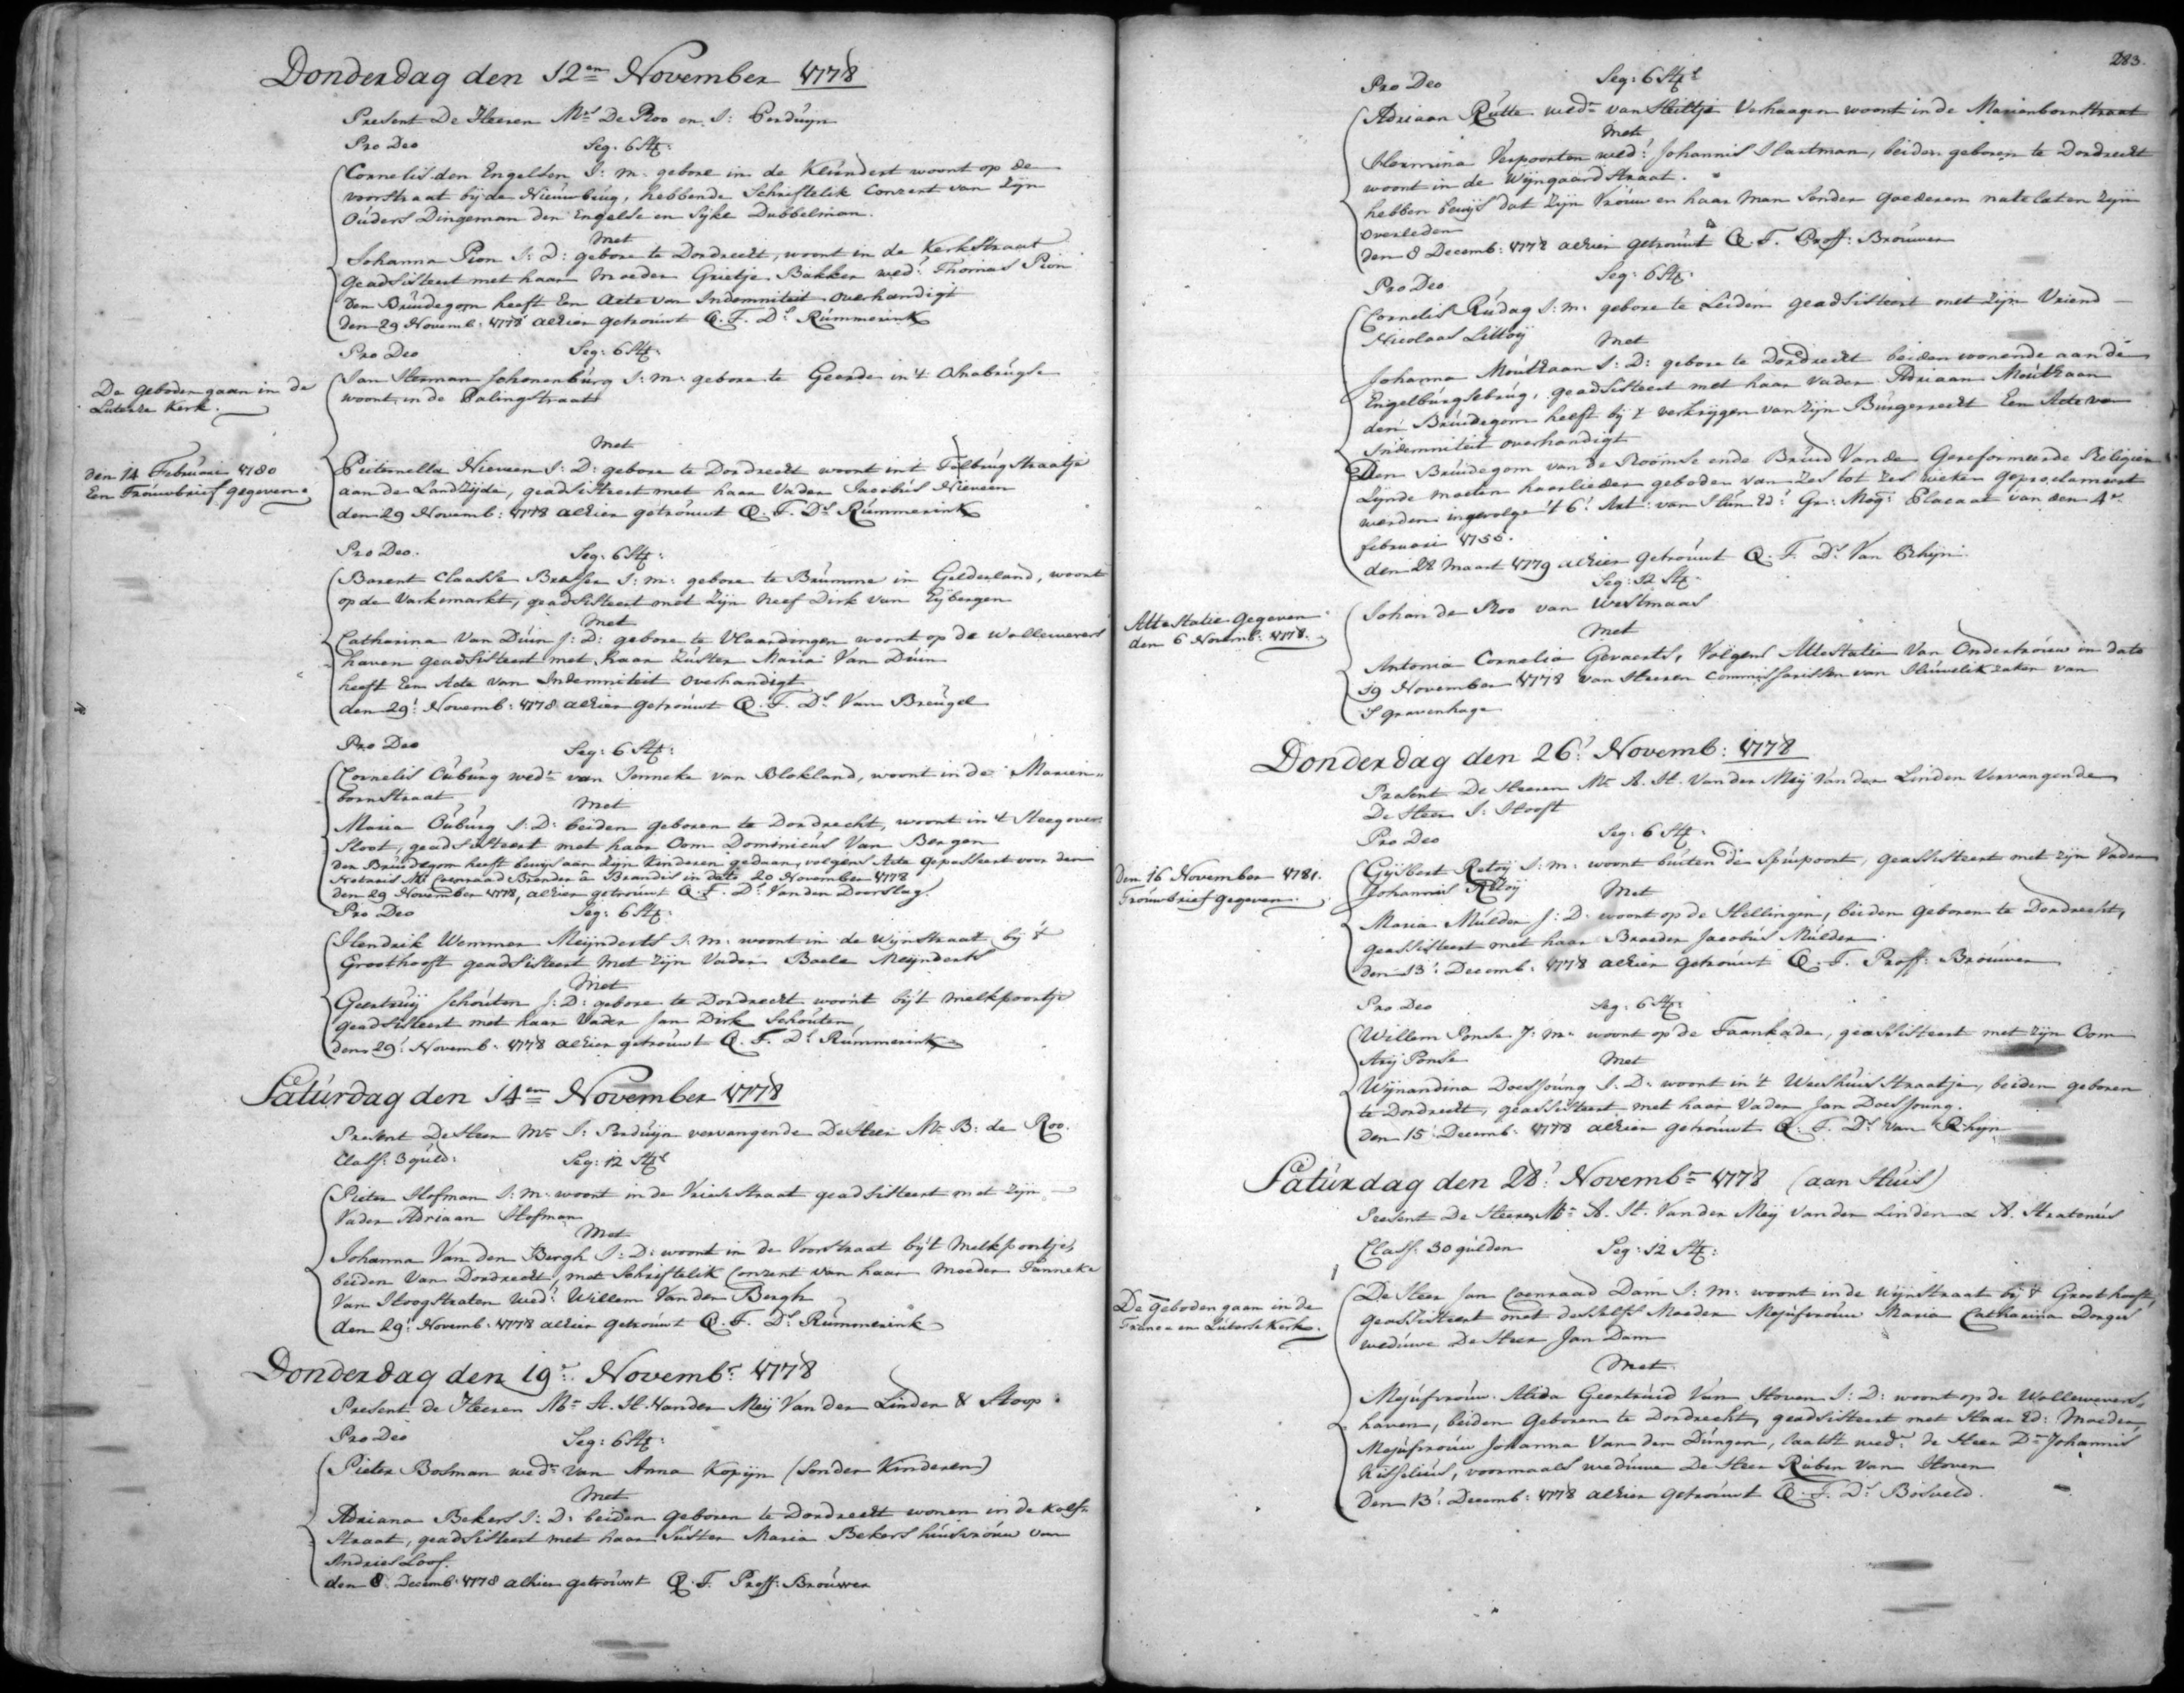 Donderdag den 12en November 1778
Present De Heeren Mrs De Roo en J: Perduijn
Pro Deo Seg: 6 St:
Cornelis den Engelsen J: m: gebore in de Klundert woont op de
voorstraat bij de Nieuwbrug, hebbende Schriftelik Consent van Zijn
Ouders Dingeman den Engelse en Sijke Dubbelman.
Met
Johanna Pion J: D: gebore te Dordrecht, woont in de Kerkstraat
geadsisteert met haar Moeder Grietje Bakker wed: Thomas Pion
den Bruidegom heeft Een Acte van Indemniteit overhandigt
den 29 Novemb: 1778 alhier getrouwt Q. T. Ds Rummerink
Pro Deo Seg: 6 St:
De geboden gaan in de
Luterse Kerk.
Jan Herman Schonenburg J: m: gebore te Geerde in 't Osnabrugse
woont in de Palingstraat
Met
den 14 Februari 1780
Een Trouwbrief gegeven
Pieternella Nieveen J: D: gebore te Dordrecht woont in 't Tolbrugstraatje
aan de Landzijde, geadsisteert met haar Vader Jacobus Nieveen
den 29 Novemb: 1778 alhier getrouwt Q. T. Ds Rummerink
Pro Deo. Seg: 6 St:
Barent Claasse Brasser J: m: gebore te Brumme in Gelderland, woont
op de Varkemarkt, geadsisteert met Zijn Neef Dirk van Eijbergen
Met
Catharina Van Duin J: D: gebore te Vlaardingen woont op de Wollewevers
haven geadsisteert met haar Zuster Maria Van Duin
heeft Een Acte van Indemniteit Overhandigt
den 29: Novemb: 1778 alhier getrouwt Q. T. Ds Van Breugel
Pro Deo Seg: 6 St:
Cornelis Ouburg wedr van Janneke van Blokland, woont in de Marien-
bornstraat
Met
Maria Ouburg J: D: beiden geboren te Dordrecht, woont in 't Steegover
sloot, geadsisteert met haar Oom Dominicus Van Bergen
den Bruidegom heeft bewijs aan Zijn Kinderen gedaan, volgens Acte gepasseert voor den
Notaris Mr Coenraad Brender à Brandis in dato 20 November 1778
den 29 November 1778, alhier getrouwt Q. T. Ds Van den Doorslag.
Pro Deo Seg: 6 St:
Hendrik Wemmer Meijnderts J: m: woont in de Wijnstraat bij 't
Groothooft geadsisteert Met Zijn Vader Boele Meijnderts
Met
Geertruij Schouten J: D: gebore te Dordrecht woont bij 't Melkpoortje
geadsisteert met haar Vader Jan Dirk Schouten
den 29: Novemb: 1778 alhier getrouwt Q. T. Ds Rummerink
Saturdag den 14en November 1778
Present De Heer Mr J: Perduijn vervangende De Heer Mr B: de Roo.
Class: 3 guld: Seg: 12 St:
Pieter Hofman J: m: woont in de Vriesestraat geadsisteert met Zijn
Vader Adriaan Hofman
Met
Johanna Van den Bergh J: D: woont in de Voorstraat bij 't Melkpoortje,
beiden Van Dordrecht, met Schriftelik Consent van haar Moeder Janneke
Van Hoogstraten wed: Willem Van den Bergh
den 29: Novemb: 1778 alhier getrouwt Q. T. Ds Rummerink
Donderdag den 19: Novembr 1778
Present de Heeren Mr A. H. Van der Meij Van der Linden & Stoop
Pro Deo Seg: 6 St:
Pieter Bosman wedr van Anna Kopijn (sonder Kinderen)
Met
Adriana Bekers J: D: beiden geboren te Dordrecht wonen in de Kolf-
straat, geadsisteert met haar Suster Maria Bekers huisvrouw van
Andries Loof.
den 8: Decemb: 1778 alhier getrouwt Q. T. Proff: Brouwer
283.
Pro Deo Seg: 6 St:
Adriaan Rutte wedr van Heiltje Verhaagen woont in de Marienbornstraat
Met
Hermina Verpoorten wed: Johannis Hartman, beiden geboren te Dordrecht
woont in de Wijngaardstraat.
hebben bewijs dat Zijn Vrouw en haar Man Sonder goederen natelaten Zijn
overleden
den 8 Decemb: 1778 alhier getrouwt Q. T. Proff: Brouwer
Pro Deo Seg: 6 St:
Cornelis Rudag J: m: gebore te Leiden geadsisteert met Zijn Vriend
Nicolaas Littoij
Met
Johanna Mouthaan J: D: gebore te Dordrecht beiden wonende aan de
Engelburgsebrug, geadsisteert met haar Vader Adriaan Mouthaan
den Bruidegom heeft bij 't verkrijgen van Zijn Burgerrecht Een Acte van
Indemniteit overhandigt
Den Bruidegom van de Roomse ende Bruid Van de Gereformeerde Religien
Zijnde moeten haarlieder geboden van Zes tot Zes weken geproclameert
werden ingevolge 't 6: Art: van Hun Ed: Gr: Mog: Placaat van den 4r
februari 1755.
den 28 Maart 1779 alhier getrouwt Q. T. Ds Van Rhijn.
Seg: 12 St:
Attestatie gegeven
den 6 Novemb: 1778.
Johan de Roo van Westmaas
Met
Antonia Cornelia Gevaerts, Volgens Attestatie Van Ondertrouw in dato
19 November 1778 van Heeren Commissarissen van Huwelikzaken van
S gravenhage
Donderdag den 26: Novemb: 1778
Present De Heeren Mr A. H. Van der Meij Van der Linden Vervangende
De Heer J: Hooft
Pro Deo Seg: 6 St:
den 16 November 1781.
Trouwbrief gegeven.
Gijsbert Retoij J: m: woont buiten de Spuipoort, geassisteert met zijn Vader
Johannis Retoij
Met
Maria Mulder J: D: woont op de Hellingen, beiden geboren te Dordrecht,
geassisteert met haar Broeder Jacobus Mulder
den 13: Decemb: 1778 alhier getrouwt Q. T. Proff: Brouwer
Pro Deo Seg: 6 St:
Willem Ponse J: m: woont op de Taankade, geassisteert met zijn Oom
Arij Ponse
Met
Wijnandina Doesjoung J: D: woont in 't Weeshuisstraatje, beiden geboren
te Dordrecht, geassisteert met haar Vader Jan Doesjoung.
den 15 Decemb: 1778 alhier getrouwt Q. T. Ds Van Rhijn
Saturdag den 28: Novembr 1778 (aan Huis)
Present De Heeren Mr A. H. Van der Meij van der Linden & A. Stratenus
Class: 30 gulden Seg: 12 St:
De geboden gaan in de
Franse en Luterse Kerk.
De Heer Jan Coenraad Dam J: m: woont in de Wijnstraat bij 't Groothooft,
geassisteert met deszelfs Moeder Mejufvrouw Maria Catharina Dorges
weduwe De Heer Jan Dam
Met
Mejufvrouw Alida Geertruid Van Hoven J: D: woont op de Wollewevers-
haven, beiden Geboren te Dordrecht, geadsisteert met Haar Ed: Moeder
Mejufvrouw Johanna Van den Dungen, laatst wedr de Heer Ds Johannis
Nisselius, voormaals weduwe De Heer Ruben van Hoven
Den 13: Decemb: 1778 alhier getrouwt Q. T. Ds Bosveld.